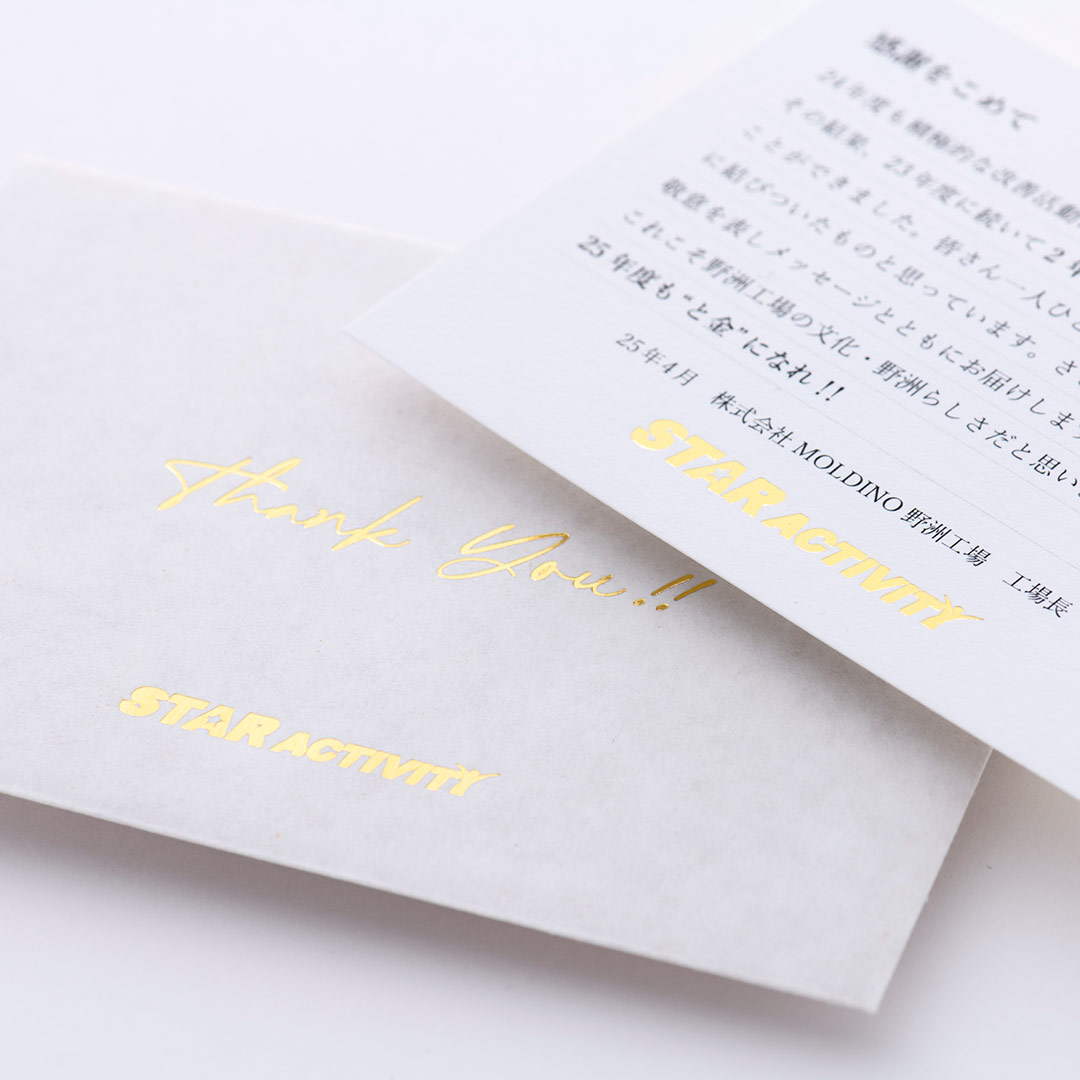 Thank You!!
STAR ACTIVITY
感謝をこめて
24年度も積極的な改善活動
その結果、23年度に続いて2年
ことができました。皆さん一人ひと
に結びついたものと思っています。さ
敬意を表しメッセージとともにお届けしま
これこそ野洲工場の文化・野洲らしさだと思い
25年度も“と金”になれ!!
25年4月 株式会社 MOLDINO 野洲工場 工場長
STAR ACTIVITY